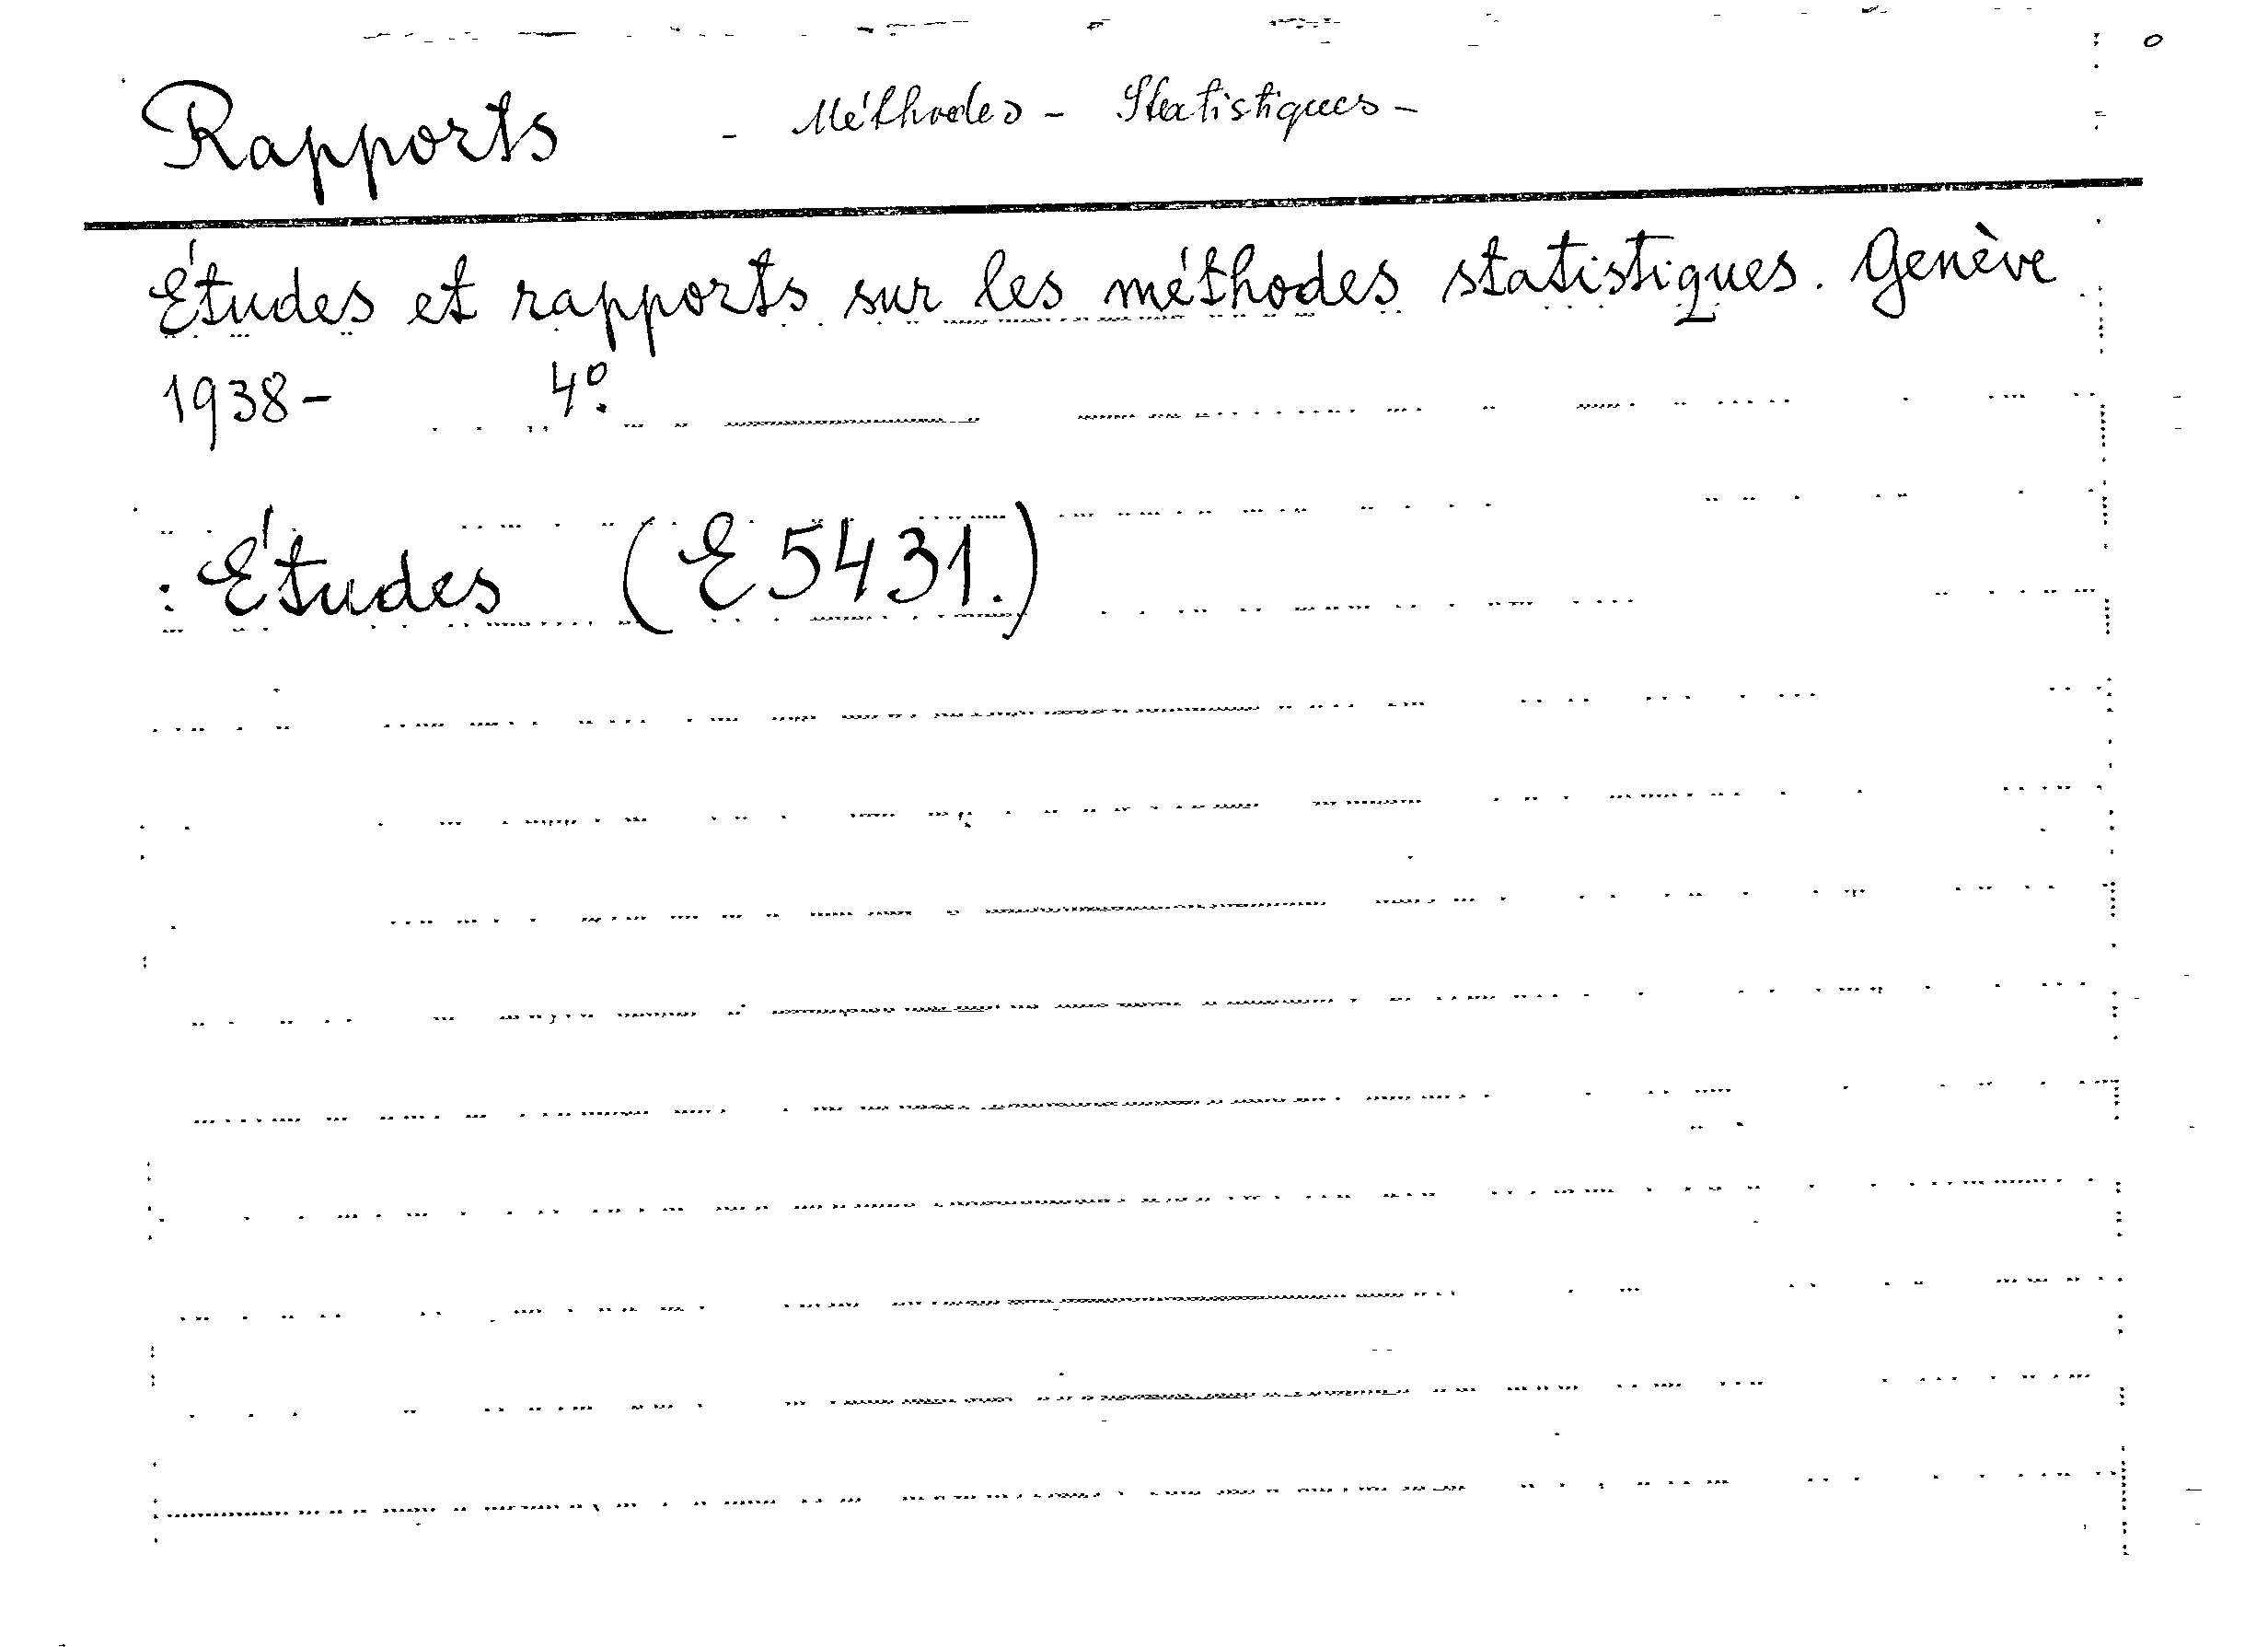 Rapports - Méthodes - Statistiques -
Études et rapports sur les méthodes statistiques. Genève
1938- 4º.
: Études (E 5431.)